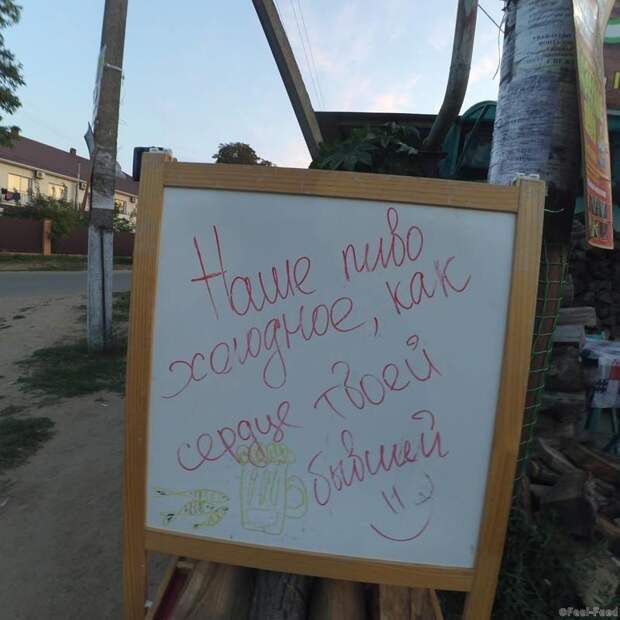 Наше пиво
холодное, как
сердце твоей
бывшей
©Feel-Feed